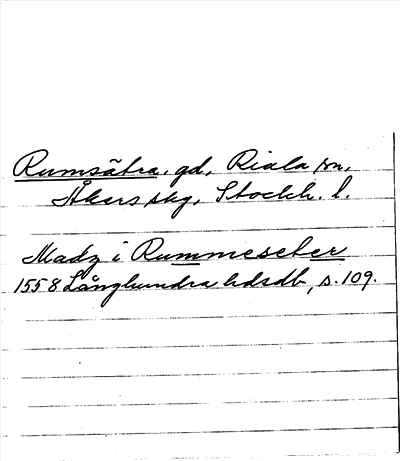 Rumsätra, gd, Riala sn,
Åkers skg, Stockh. l.
Madz i Rummeseter
1558 Långhundra hdsdb, s. 109.